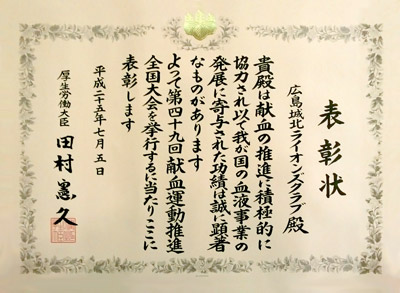 表彰状
広島城北ライオンズクラブ殿
貴殿は献血の推進に積極的に
協力され以て我が国の血液事業の
発展に寄与された功績は誠に顕著
なものがあります
よって第四十九回献血運動推進
全国大会を挙行するに当たりここに
表彰します
平成二十五年七月五日
厚生労働大臣
田村憲久